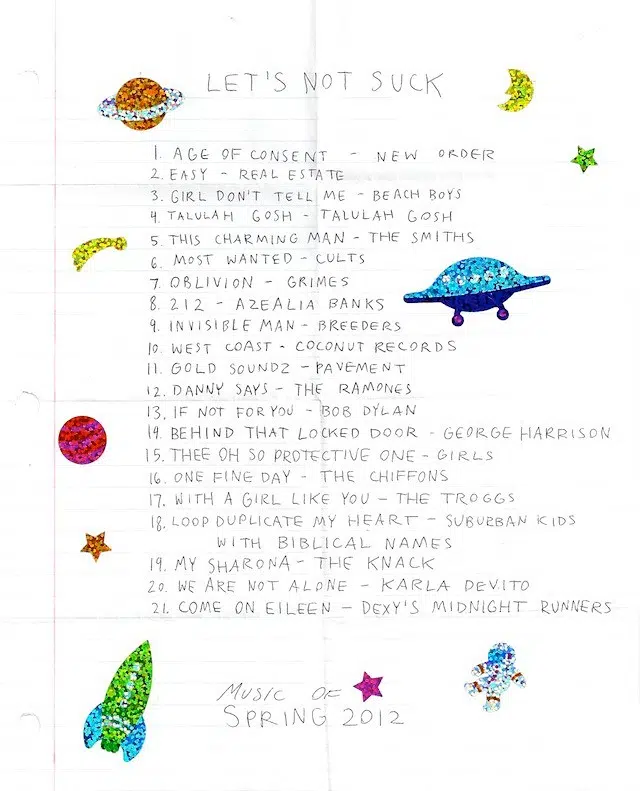 LET'S NOT SUCK
1. AGE OF CONSENT - NEW ORDER
2. EASY - REAL ESTATE
3. GIRL DON'T TELL ME - BEACH BOYS
4. TALULAH GOSH - TALULAH GOSH
5. THIS CHARMING MAN - THE SMITHS
6. MOST WANTED - CULTS
7. OBLIVION - GRIMES
8. 212 - AZEALIA BANKS
9. INVISIBLE MAN - BREEDERS
10. WEST COAST - COCONUT RECORDS
11. GOLD SOUNDZ - PAVEMENT
12. DANNY SAYS - THE RAMONES
13. IF NOT FOR YOU - BOB DYLAN
14. BEHIND THAT LOCKED DOOR - GEORGE HARRISON
15. THEE OH SO PROTECTIVE ONE - GIRLS
16. ONE FINE DAY - THE CHIFFONS
17. WITH A GIRL LIKE YOU - THE TROGGS
18. LOOP DUPLICATE MY HEART - SUBURBAN KIDS
WITH BIBLICAL NAMES
19. MY SHARONA - THE KNACK
20. WE ARE NOT ALONE - KARLA DEVITO
21. COME ON EILEEN - DEXY'S MIDNIGHT RUNNERS
MUSIC OF
SPRING 2012